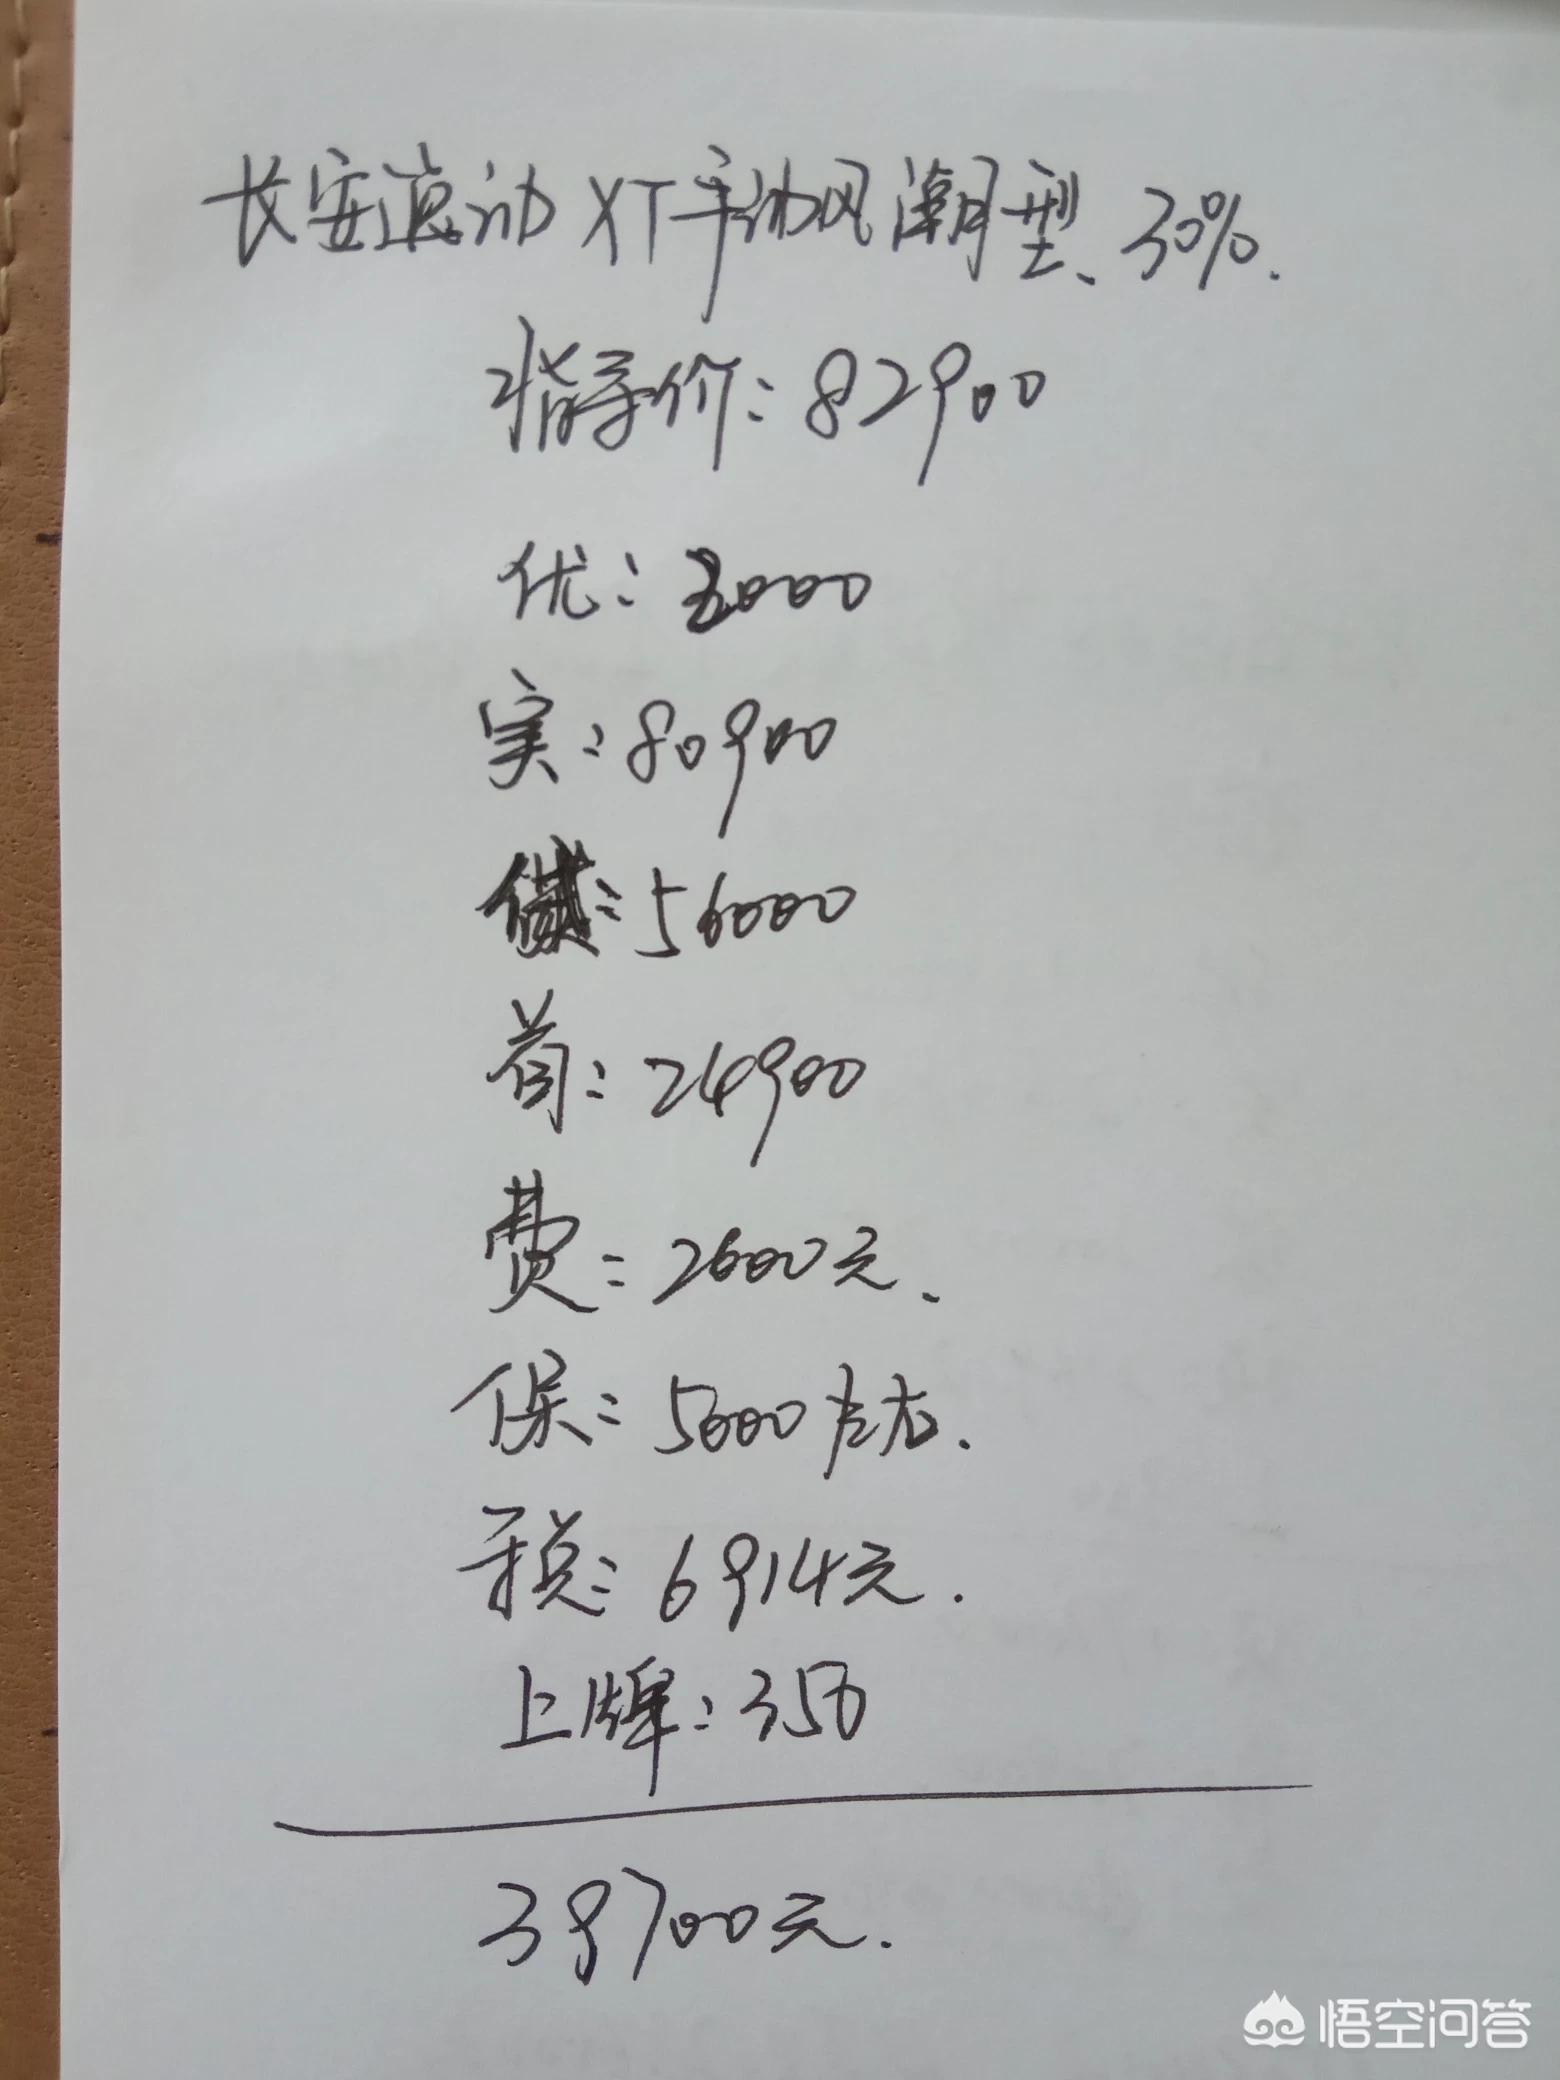 长安逸动XT手动风潮型、30%.
指导价:82900
优:2000
实:80900
:56000
首:24900
费:2600元、
保:5600左右.
税:6914元.
上牌:350
39700元.
悟空问答